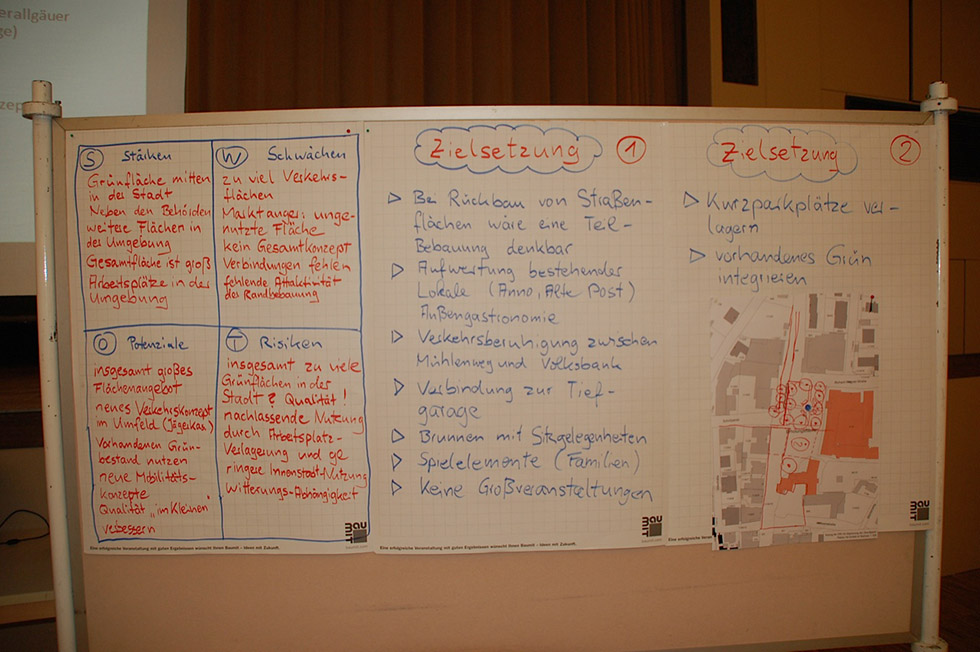 erallgäuer
ge)
zep
S Stärken
Grünfläche mitten
in der Stadt
Neben den Behörden
weitere Flächen in
der Umgebung
Gesamtfläche ist groß
Arbeitsplätze in der
Umgebung
W Schwächen
zu viel Verkehrs-
flächen
Marktanger: unge-
nutzte Fläche
kein Gesamtkonzept
Verbindungen fehlen
fehlende Attraktivität
der Randbebauung
O Potenziale
insgesamt großes
Flächenangebot
neues Verkehrskonzept
im Umfeld (Jägerkas.)
Vorhandenen Grün-
bestand nutzen
neue Mobilitäts-
konzepte
Qualität "im Kleinen"
verbessern
T Risiken
insgesamt zu viele
Grünflächen in der
Stadt? Qualität!
nachlassende Nutzung
durch Arbeitsplatz-
Verlagerung und ge
ringere Innenstadt-Nutzung
Witterungs-Abhängigkeit
BAU
MIT
Eine erfolgreiche Veranstaltung mit guten Ergebnissen wünscht Ihnen Baumit – Ideen mit Zukunft.
Zielsetzung 1
Bei Rückbau von Straßen-
flächen wäre eine Teil-
Bebauung denkbar
Aufwertung bestehender
Lokale (Anno, Alte Post)
Außengastronomie
Verkehrsberuhigung zwischen
Mühlenweg und Volksbank
Verbindung zur Tief-
garage
Brunnen mit Sitzgelegenheiten
Spielelemente (Familien)
Keine Großveranstaltungen
BAU
MIT
Eine erfolgreiche Veranstaltung mit guten Ergebnissen wünscht Ihnen Baumit – Ideen mit Zukunft.
Zielsetzung 2
Kurzparkplätze ver-
lagern
vorhandenes Grün
integrieren
BAU
MIT
Eine erfolgreiche Veran